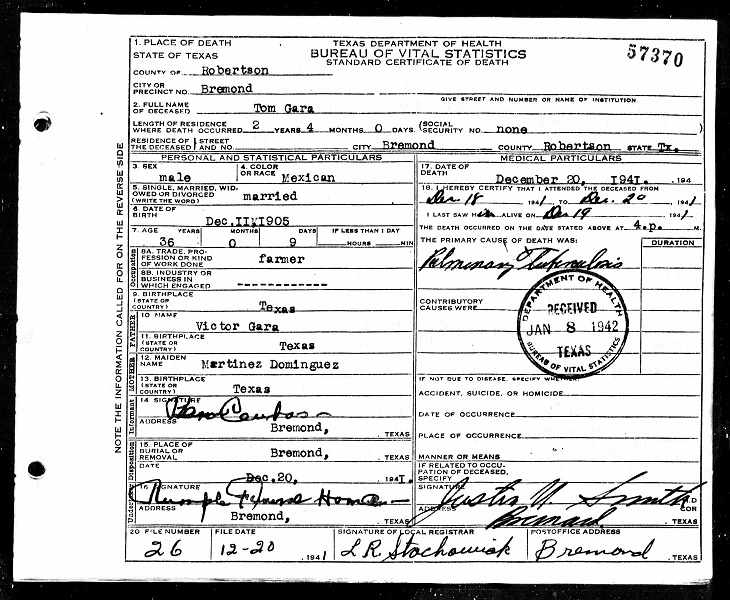 TEXAS DEPARTMENT OF HEALTH
BUREAU OF VITAL STATISTICS
STANDARD CERTIFICATE OF DEATH
57370
1. PLACE OF DEATH
STATE OF TEXAS
COUNTY OF Robertson
CITY OR PRECINCT NO. Bremond
GIVE STREET AND NUMBER OR NAME OF INSTITUTION
2. FULL NAME OF DECEASED Tom Gara
LENGTH OF RESIDENCE WHERE DEATH OCCURRED 2 YEARS 4 MONTHS 0 DAYS. (SOCIAL SECURITY NO. none )
RESIDENCE OF THE DECEASED STREET AND NO. CITY Bremond COUNTY Robertson STATE Tx.
PERSONAL AND STATISTICAL PARTICULARS
3. SEX male
4. COLOR OR RACE Mexican
5. SINGLE, MARRIED, WIDOWED OR DIVORCED (WRITE THE WORD) married
6. DATE OF BIRTH Dec.II,I905
7. AGE YEARS MONTHS DAYS IF LESS THAN 1 DAY
36 0 9 HOURS MIN.
Occupation
8A. TRADE, PROFESSION OR KIND OF WORK DONE farmer
8B. INDUSTRY OR BUSINESS IN WHICH ENGAGED -------------
9. BIRTHPLACE (STATE OR COUNTRY) Texas
FATHER
10. NAME Victor Gara
11. BIRTHPLACE (STATE OR COUNTRY) Texas
MOTHER
12. MAIDEN NAME Martinez Dominguez
13. BIRTHPLACE (STATE OR COUNTRY) Texas
Informant
14 SIGNATURE
ADDRESS Bremond, , TEXAS
Disposition
15. PLACE OF BURIAL OR REMOVAL Bremond, , TEXAS
DATE Dec.20, 194I.
16 SIGNATURE
ADDRESS Bremond, , TEXAS
MEDICAL PARTICULARS
17. DATE OF DEATH December 20, I94I. , 194
18. I HEREBY CERTIFY THAT I ATTENDED THE DECEASED FROM
Dec 18 1941 TO Dec. 20 1941
I LAST SAW HIM ALIVE ON Dec 19 1941
THE DEATH OCCURRED ON THE DATE STATED ABOVE AT 4.p. M.
THE PRIMARY CAUSE OF DEATH WAS: DURATION
Pulminary Tuberculosis
CONTRIBUTORY CAUSES WERE:
DEPARTMENT OF HEALTH
RECEIVED
JAN 8 1942
TEXAS
BUREAU OF VITAL STATISTICS
IF NOT DUE TO DISEASE, SPECIFY WHETHER:
ACCIDENT, SUICIDE, OR HOMICIDE
DATE OF OCCURRENCE
PLACE OF OCCURRENCE , TEXAS
MANNER OR MEANS
IF RELATED TO OCCUPATION OF DECEASED, SPECIFY
SIGNATURE Justin N Smith
ADDRESS Bremond , TEXAS
20 FILE NUMBER 26
FILE DATE 12-20 , 1941
SIGNATURE OF LOCAL REGISTRAR L.R. Stachowiak
POSTOFFICE ADDRESS Bremond , TEXAS
NOTE THE INFORMATION CALLED FOR ON THE REVERSE SIDE